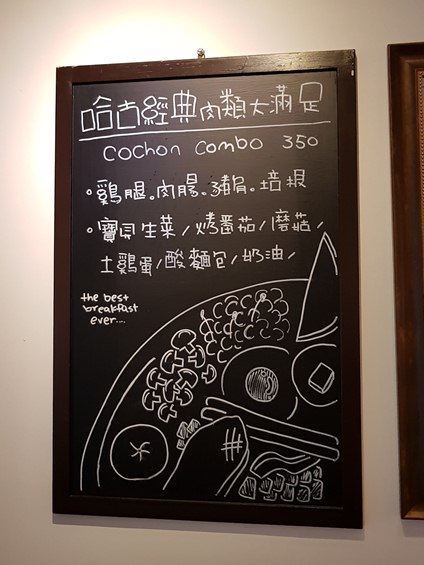 哈古經典肉類大滿足
cochon combo 350
。雞腿。肉腸。豬肩。培根
。寶貝生菜/烤番茄/蘑菇/
土雞蛋/酸麵包/奶油/
the best
breakfast
ever....